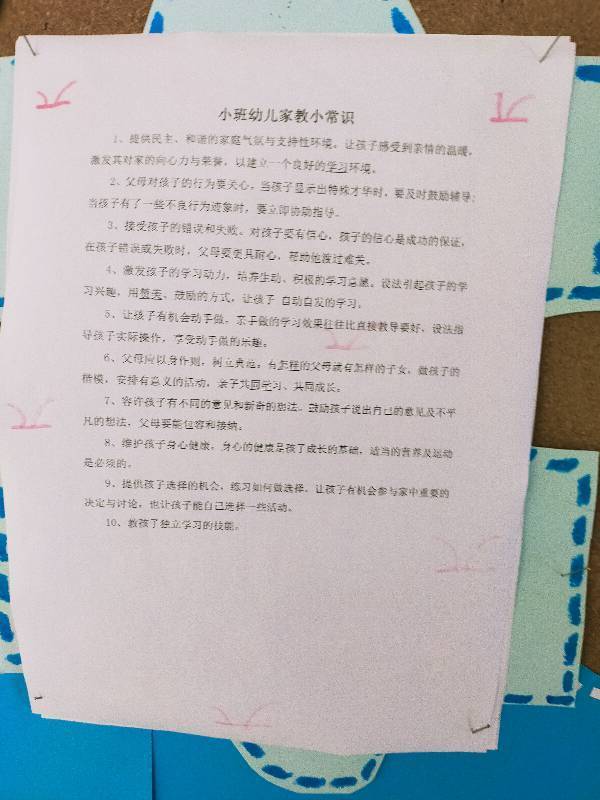 小班幼儿家教小常识
1、提供民主、和谐的家庭气氛与支持性环境。让孩子感受到亲情的温暖,
激发其对家的向心力与荣誉,以建立一个良好的学习环境。
2、父母对孩子的行为要关心,当孩子显示出特殊才华时,要及时鼓励辅导;
当孩子有了一些不良行为迹象时,要立即协助指导。
3、接受孩子的错误和失败。对孩子要有信心,孩子的信心是成功的保证,
在孩子错误或失败时,父母要更具耐心,帮助他渡过难关。
4、激发孩子的学习动力,培养生动、积极的学习意愿。设法引起孩子的学
习兴趣,用赞美、鼓励的方式,让孩子 自动自发的学习。
5、让孩子有机会动手做,亲手做的学习效果往往比直接教导要好,设法指
导孩子实际操作,享受动手做的乐趣。
6、父母应以身作则,树立典范。有怎样的父母就有怎样的子女,做孩子的
楷模,安排有意义的活动,亲子共同学习、共同成长。
7、容许孩子有不同的意见和新奇的想法。鼓励孩子说出自己的意见及不平
凡的想法,父母要能包容和接纳。
8、维护孩子身心健康,身心的健康是孩子成长的基础,适当的营养及运动
是必须的。
9、提供孩子选择的机会,练习如何做选择。让孩子有机会参与家中重要的
决定与讨论,也让孩子能自己选择一些活动。
10、教孩子独立学习的技能。